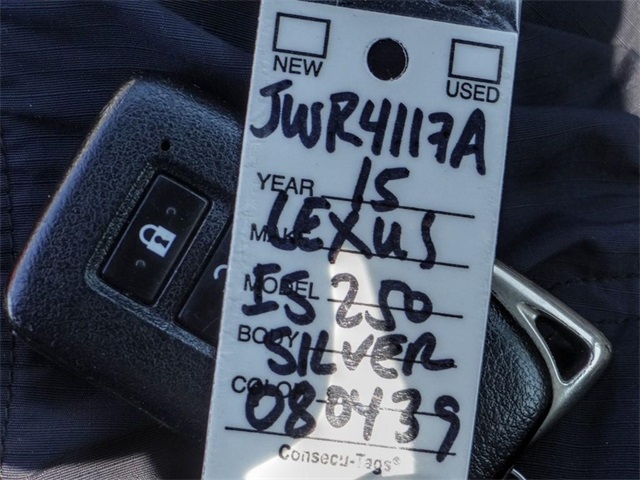 NEW USED
JWR4117A
YEAR 15
MAKE LEXUS
MODEL IS 250
BODY SILVER
COLOR 080439
Consecu-Tags®